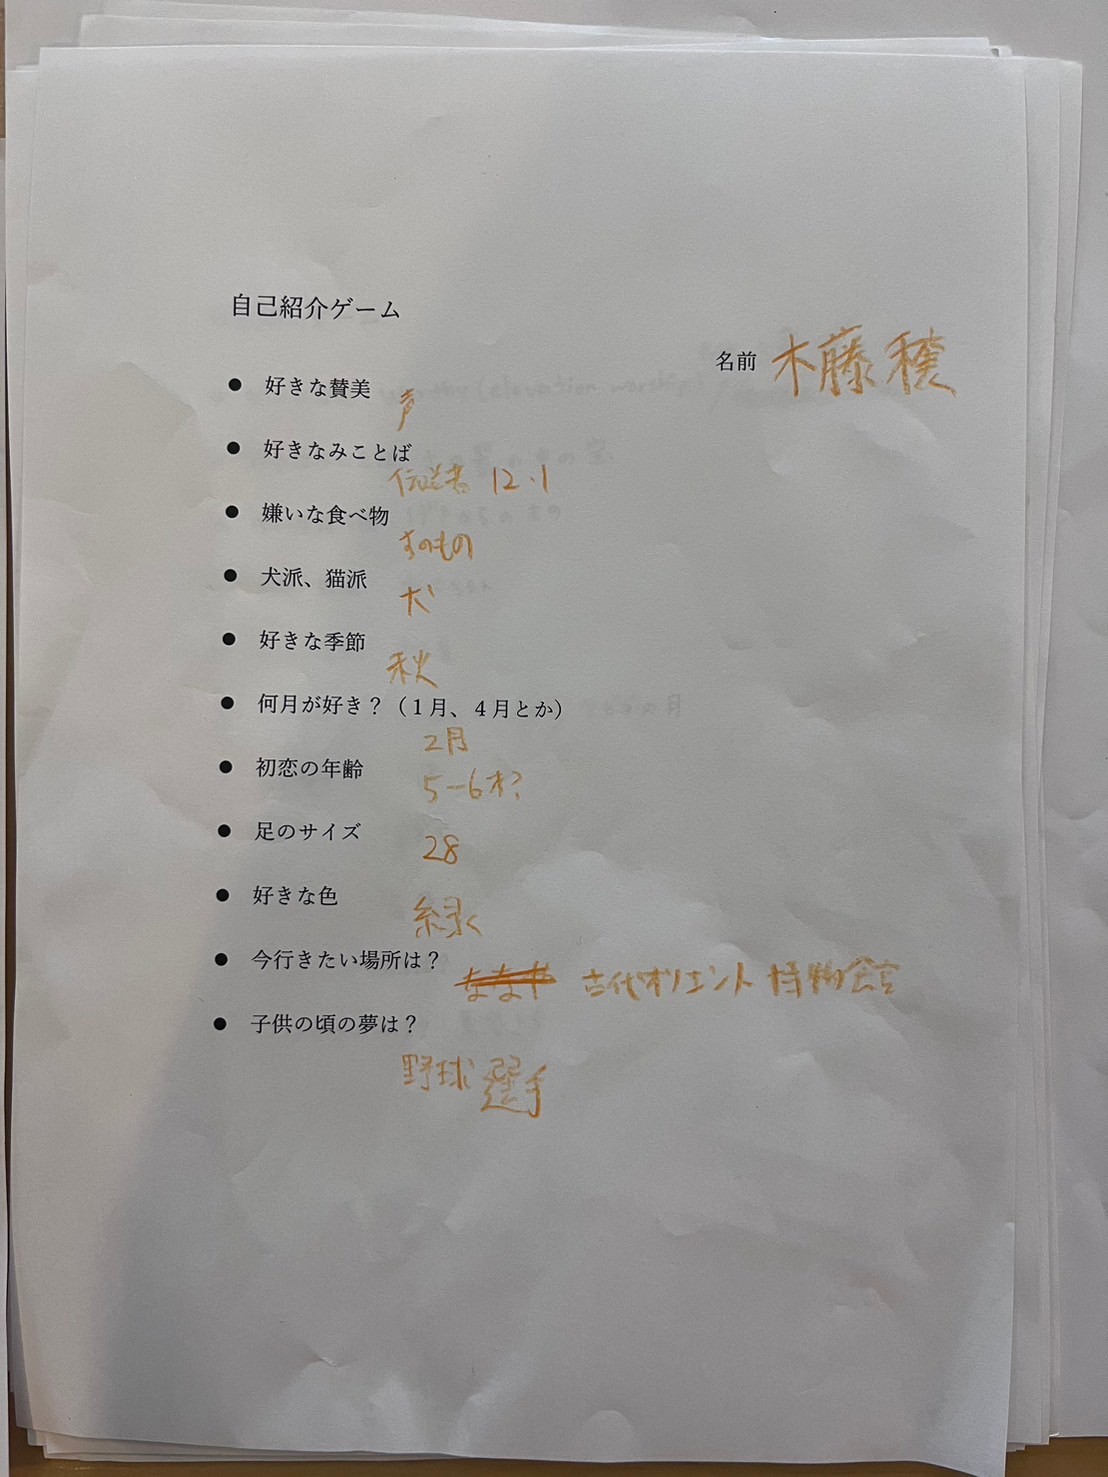 自己紹介ゲーム
名前 木藤穣
● 好きな賛美
声
● 好きなみことば
伝道者 12.1
● 嫌いな食べ物
すのもの
● 犬派、猫派
犬
● 好きな季節
秋
● 何月が好き？（１月、４月とか）
2月
● 初恋の年齢
5-6才？
● 足のサイズ
28
● 好きな色
緑
● 今行きたい場所は？
古代オリエント博物館
● 子供の頃の夢は？
野球選手